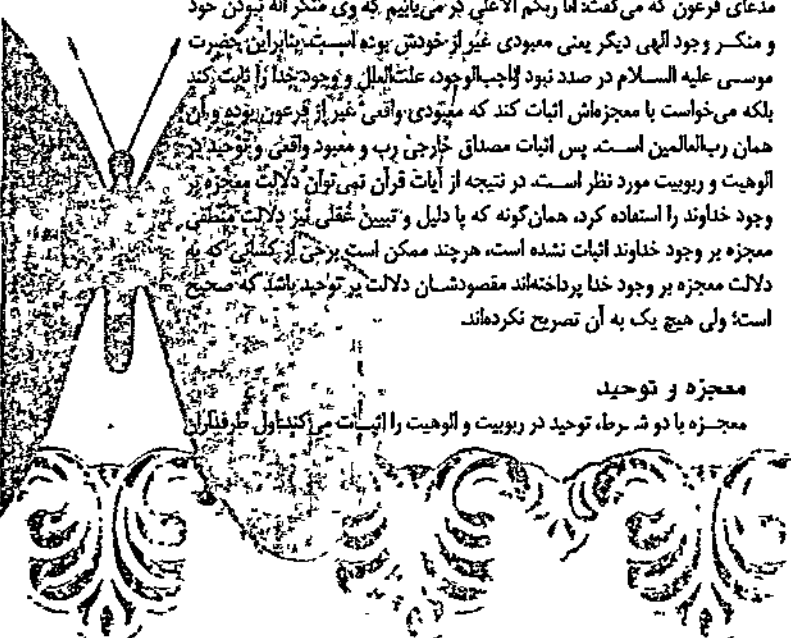 مدعای فرعون که می‌گفت: انا ربکم الاعلی در می‌یابیم که وی منکر اله نبودن خود
و منکر وجود الهی دیگر یعنی معبودی غیر از خودش بوده است. بنابراین حضرت
موسی علیه السلام در صدد نبود واجب‌الوجود، علت‌العلل و وجود خدا را ثابت کند
بلکه می‌خواست با معجزه‌اش اثبات کند که معبودی واقعی غیر از فرعون بوده و آن
همان رب‌العالمین است. پس اثبات مصداق خارجی رب و معبود واقعی و توحید در
الوهیت و ربوبیت مورد نظر است. در نتیجه از آیات قرآن نمی‌توان دلالت معجزه بر
وجود خداوند را استفاده کرد، همان‌گونه که با دلیل و تبیین عقلی نیز دلالت منطقی
معجزه بر وجود خداوند اثبات نشده است، هرچند ممکن است برخی از کسانی که به
دلالت معجزه بر وجود خدا پرداخته‌اند مقصودشان دلالت بر توحید باشد که صحیح
است؛ ولی هیچ یک به آن تصریح نکرده‌اند.
معجزه و توحید
معجزه با دو شرط، توحید در ربوبیت و الوهیت را اثبات می‌کند: اول طرفداران